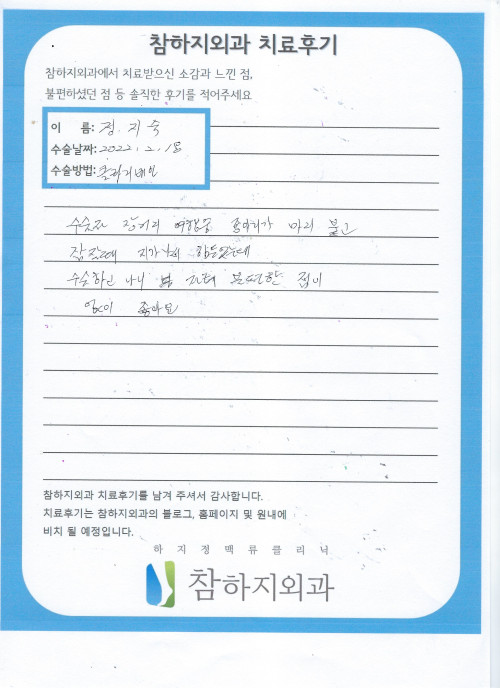 참하지외과 치료후기
참하지외과에서 치료받으신 소감과 느낀 점,
불편하셨던 점 등 솔직한 후기를 적어주세요
이 름: 정지숙
수술날짜: 2022. 2. 18
수술방법: 클라리베인
수술전 장거리 여행중 종아리가 마리 붓고
잠잘때 힘들었는데
수술하고 나니 불편한 점이
없이 좋아요
참하지외과 치료후기를 남겨 주셔서 감사합니다.
치료후기는 참하지외과의 블로그, 홈페이지 및 원내에
비치 될 예정입니다.
하지정맥류클리닉
참하지외과